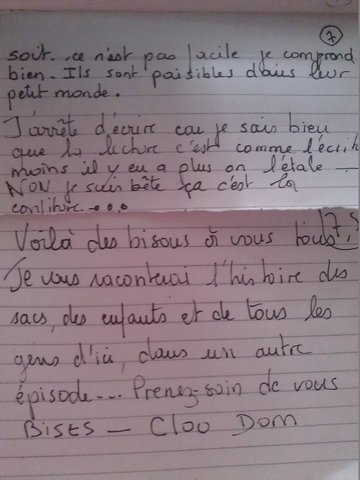 7
soit. ce n'est pas facile je comprend
bien. Ils sont paisibles dans leur
petit monde.
J'arrête d'écrire car je sais bien
que la lecture c'est comme l'écrit
moins il y en a plus on l'étale
NON je suis bête ça c'est la
confiture....
Voilà des bisous à vous tous!
Je vous raconterai l'histoire des
sacs, des enfants et de tous les
gens d'ici, dans un autre
épisode... Prenez-soin de vous
BISES — Cloo Dom